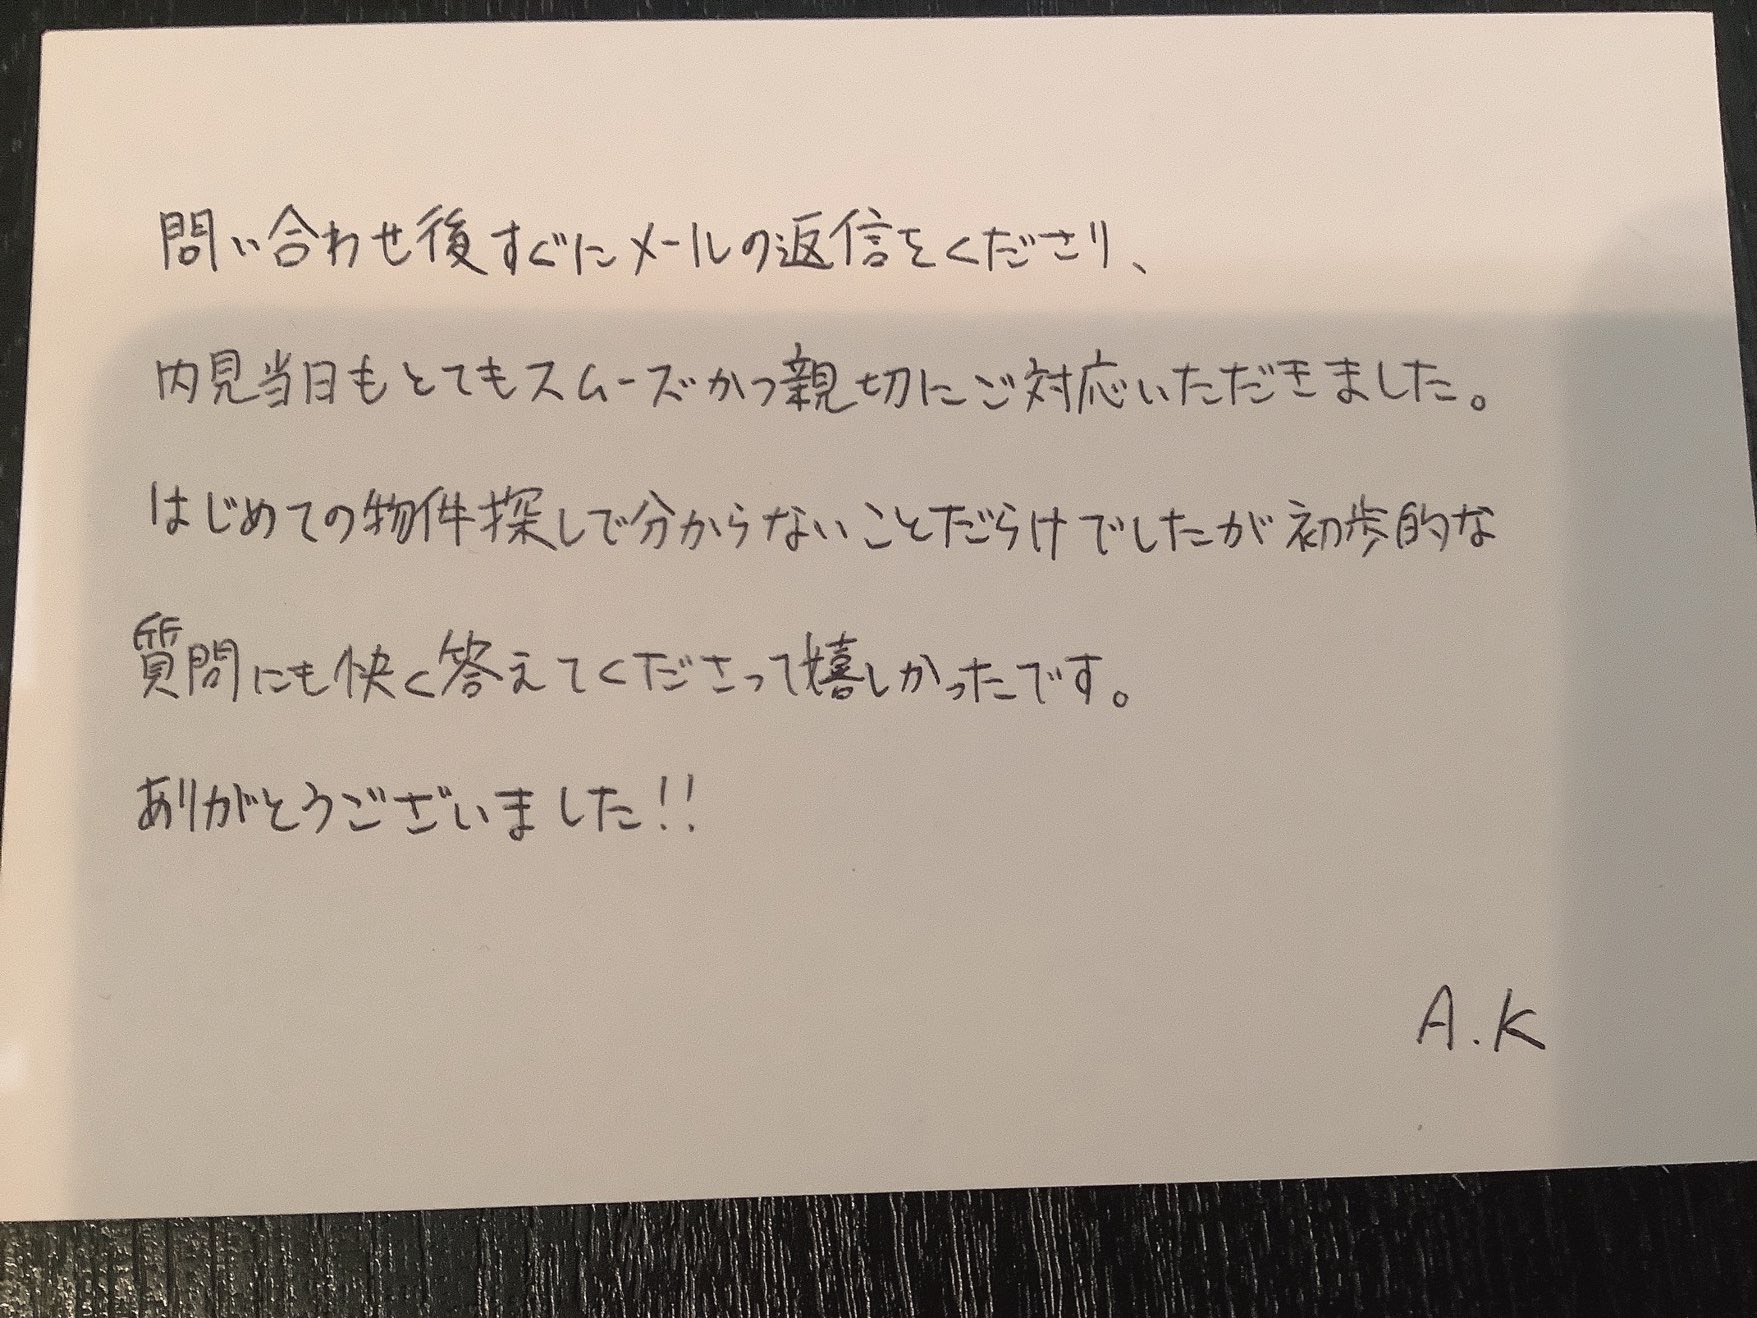 問い合わせ後すぐにメールの返信をくださり、
内見当日もとてもスムーズかつ親切にご対応いただきました。
はじめての物件探しで分からないことだらけでしたが初歩的な
質問にも快く答えてくださって嬉しかったです。
ありがとうございました!!
A.K